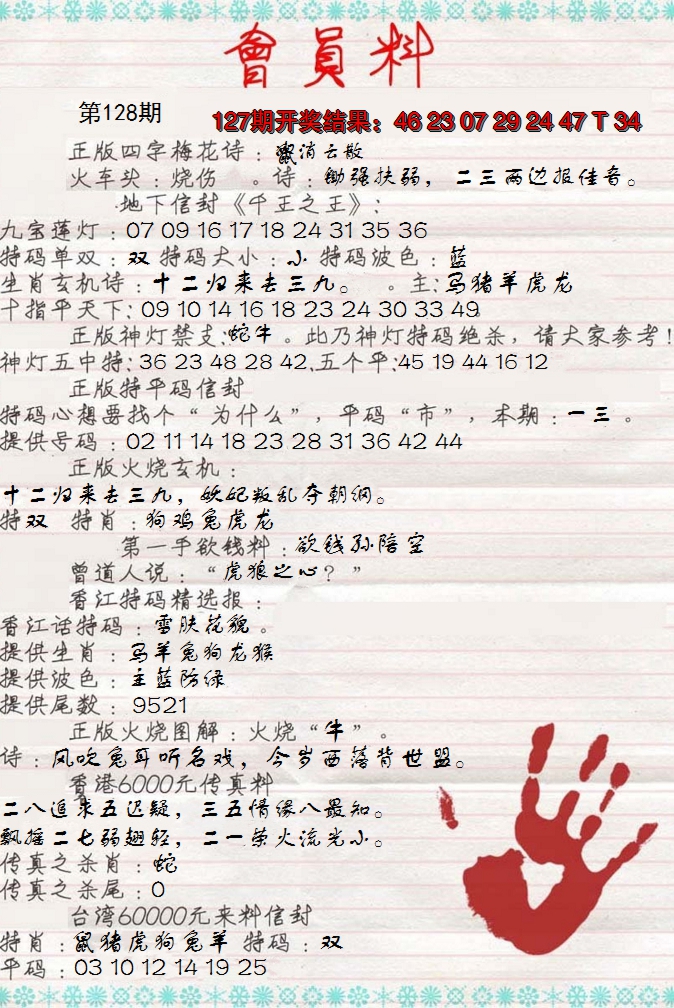 會員料
第128期
127期开奖结果：46 23 07 29 24 47 T 34
正版四字梅花诗：鼠消云散
火车头：烧伤 。诗：锄强扶弱，二三两边报佳音。
地下信封《千王之王》：
九宝莲灯：07 09 16 17 18 24 31 35 36
特码单双：双 特码大小：小 特码波色：蓝
生肖玄机诗：十二归来去三九。 。主：马猪羊虎龙
十指平天下：09 10 14 16 18 23 24 30 33 49
正版神灯禁支：蛇牛。此乃神灯特码绝杀，请大家参考！
神灯五中特：36 23 48 28 42.五个平：45 19 44 16 12
正版特平码信封
特码心想要找个“为什么”，平码“市”，本期：一三。
提供号码：02 11 14 18 23 28 31 36 42 44
正版火烧玄机：
十二归来去三九，妖妃叛乱夺朝纲。
特双 特肖：狗鸡兔虎龙
第一手欲钱料：欲钱孙陪空
曾道人说：“虎狼之心？”
香江特码精选报：
香江话特码：雪肤花貌。
提供生肖：马羊兔狗龙猴
提供波色：主蓝防绿
提供尾数：9521
正版火烧图解：火烧“牛”。
诗：风吹兔耳听名戏，今岁西落背世盟。
香港6000元传真料
二八追来五迟疑，三五情缘八最知。
飘摇二七弱翅轻，二一荣火流光小。
传真之杀肖：蛇
传真之杀尾：0
台湾60000元来料信封
特肖：鼠猪虎狗兔羊 特码：双
平码：03 10 12 14 19 25